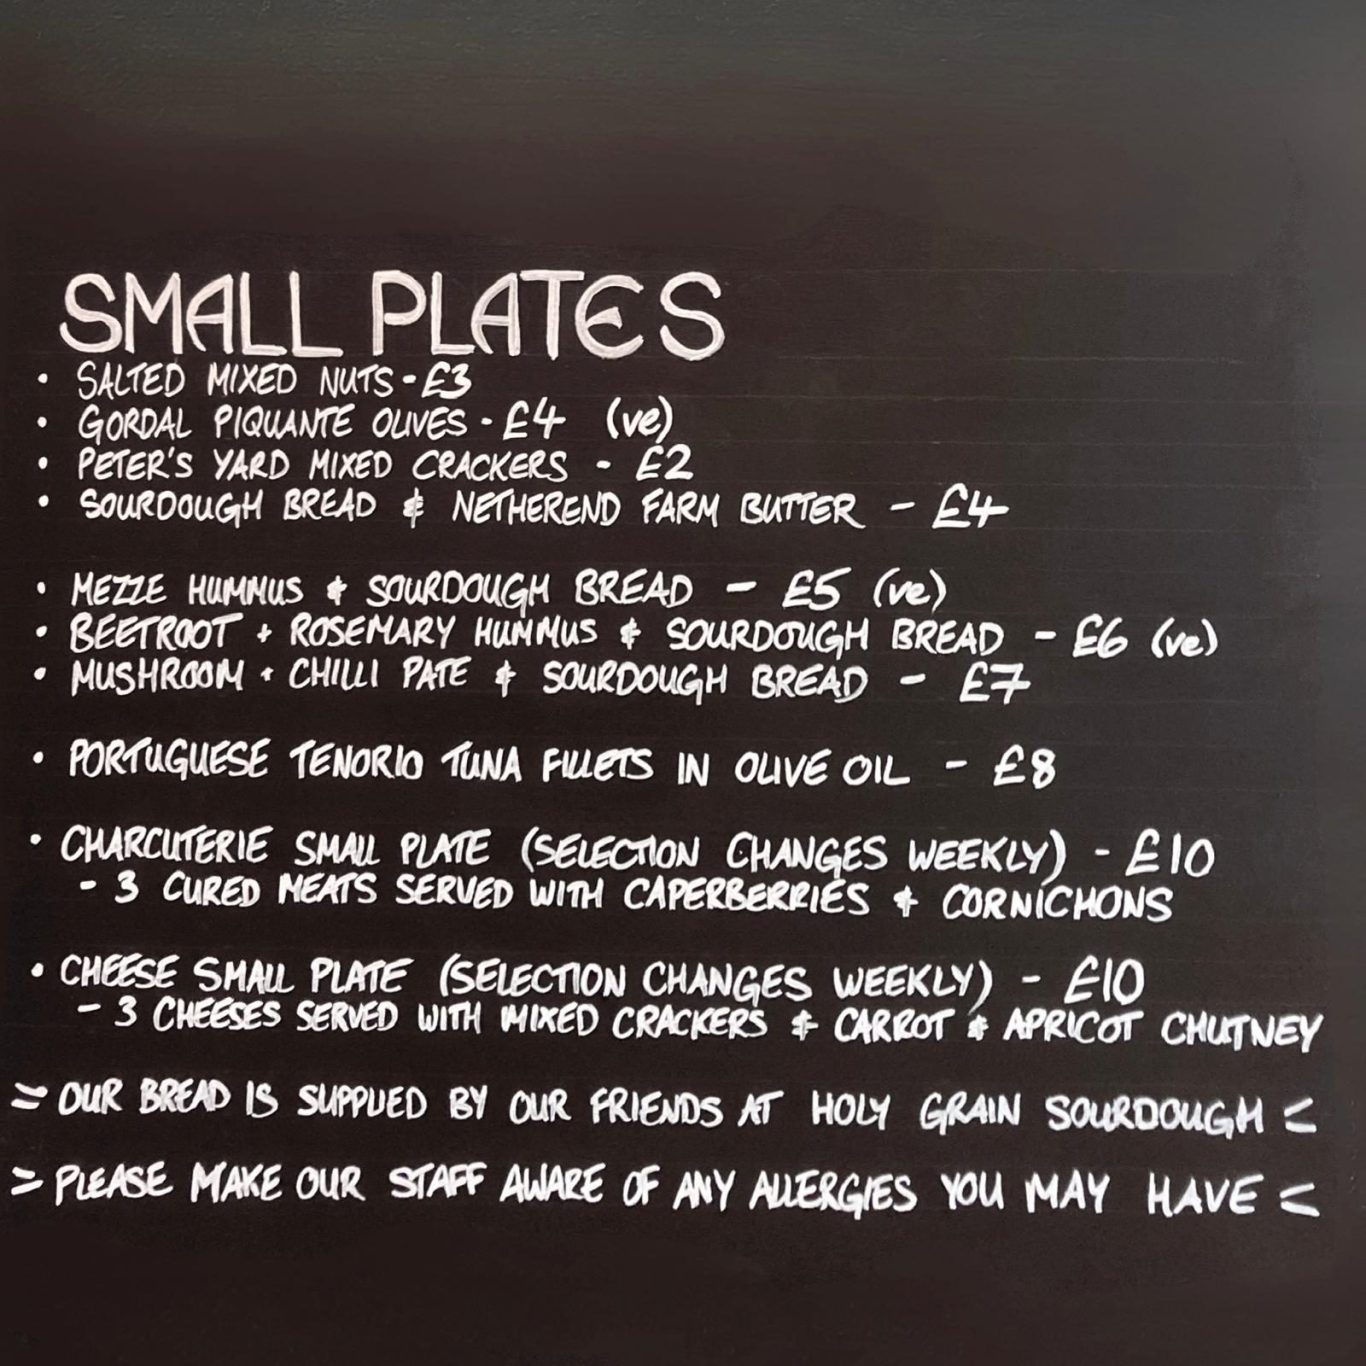 SMALL PLATES
• SALTED MIXED NUTS - £3
• GORDAL PIQUANTE OLIVES - £4 (ve)
• PETER'S YARD MIXED CRACKERS - £2
• SOURDOUGH BREAD & NETHEREND FARM BUTTER - £4
• MEZZE HUMMUS & SOURDOUGH BREAD - £5 (ve)
• BEETROOT + ROSEMARY HUMMUS & SOURDOUGH BREAD - £6 (ve)
• MUSHROOM + CHILLI PATE & SOURDOUGH BREAD - £7
• PORTUGUESE TENORIO TUNA FILLETS IN OLIVE OIL - £8
• CHARCUTERIE SMALL PLATE (SELECTION CHANGES WEEKLY) - £10
- 3 CURED MEATS SERVED WITH CAPERBERRIES & CORNICHONS
• CHEESE SMALL PLATE (SELECTION CHANGES WEEKLY) - £10
- 3 CHEESES SERVED WITH MIXED CRACKERS & CARROT & APRICOT CHUTNEY
> OUR BREAD IS SUPPLIED BY OUR FRIENDS AT HOLY GRAIN SOURDOUGH <
> PLEASE MAKE OUR STAFF AWARE OF ANY ALLERGIES YOU MAY HAVE <